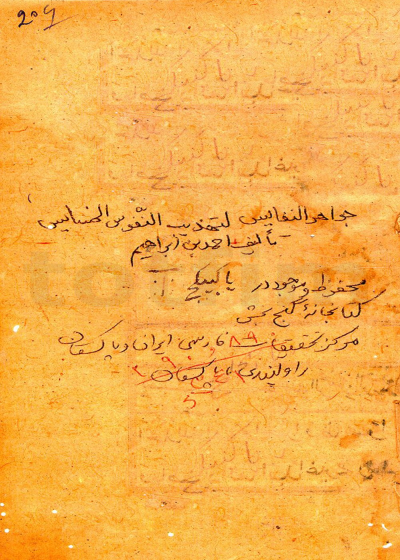 ۲۰۶
جواهر النفایس لتهذیب النفوس الخسایس
تألیف احمد بن ابراهیم
محفوظ و موجود در یا کبیکج
کتابخانهٔ گنج بخش
مرکز تحقیقات فارسی ایران و پاکستان
راولپندی پاکستان